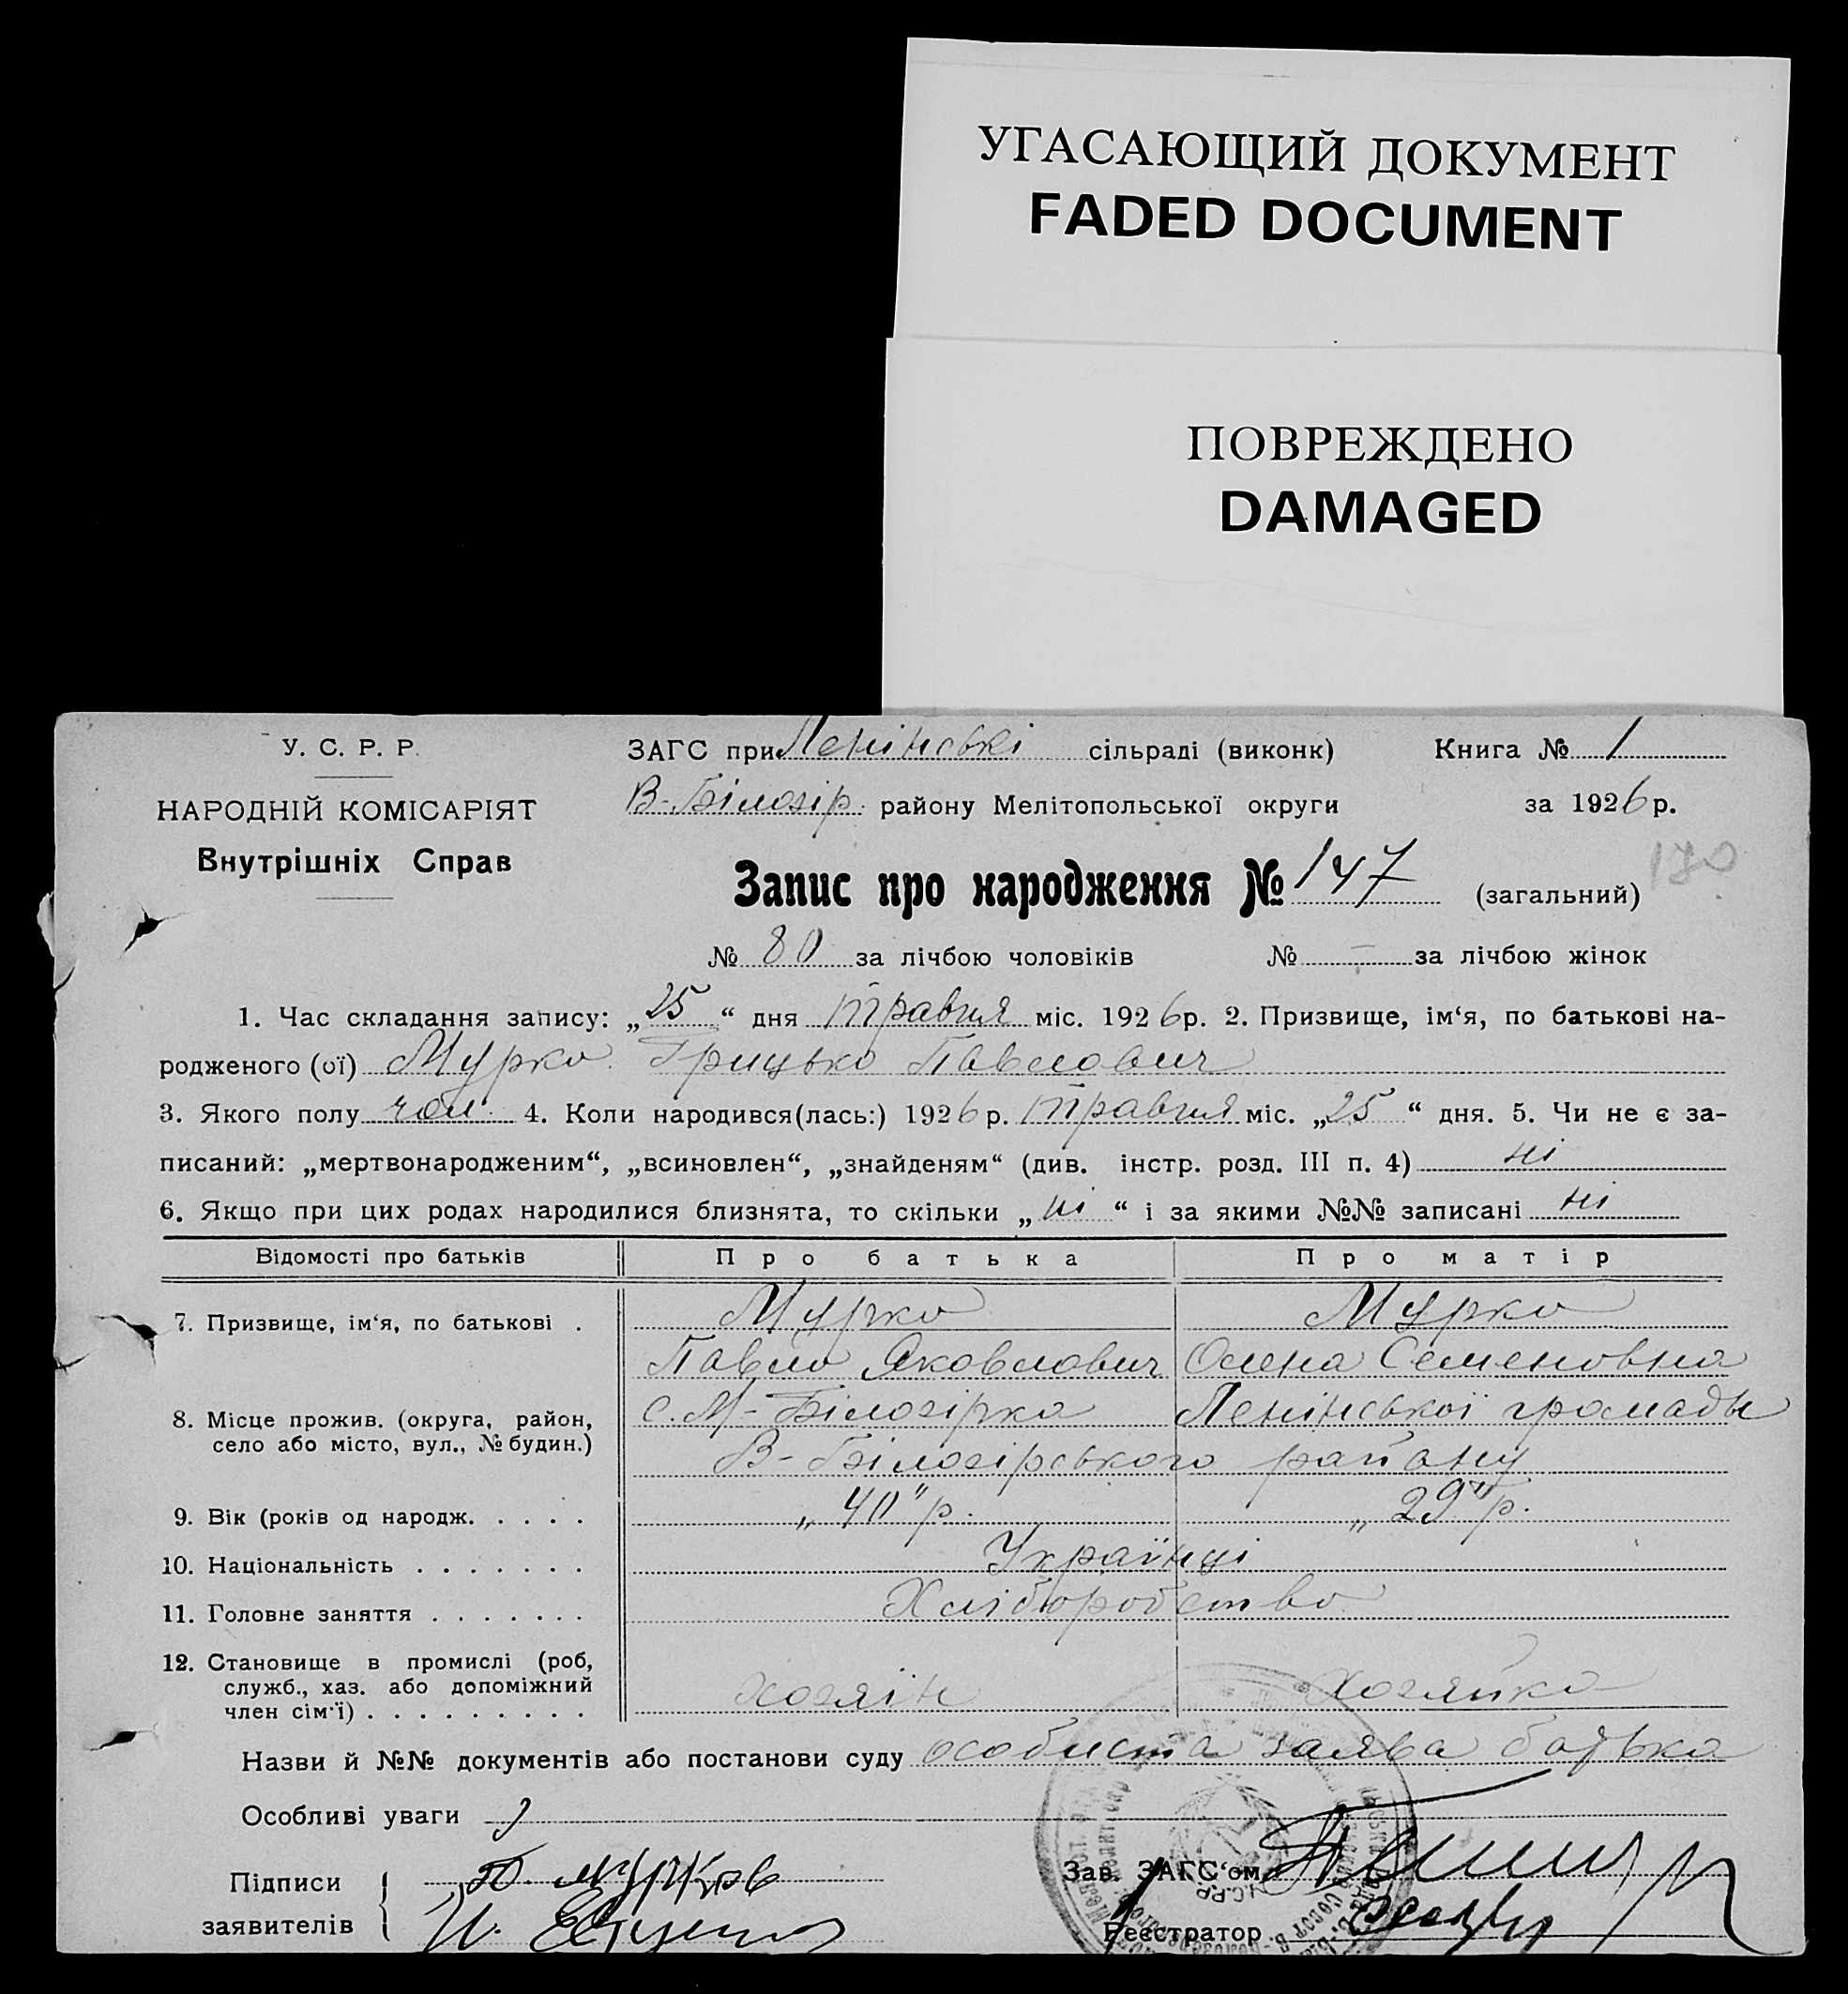 УГАСАЮЩИЙ ДОКУМЕНТ
FADED DOCUMENT
ПОВРЕЖДЕНО
DAMAGED
У. С. Р. Р.
НАРОДНІЙ КОМІСАРІЯТ
Внутрішніх Справ
ЗАГС при Ленінські сільраді (виконк) Книга № 1
В-Білогір. району Мелітопольської округи за 1926 р.
Запис про народження № 147 (загальний) 170
№ 80 за лічбою чоловіків № – за лічбою жінок
1. Час складання запису: „25“ дня травня міс. 1926 р. 2. Призвище, ім‘я, по батькові на-
родженого (ої) Мурко Грицько Павлович
3. Якого полу чол. 4. Коли народився(лась:) 1926 р. травня міс. „25“ дня. 5. Чи не є за-
писаний: „мертвонародженим“, „всиновлен“, „знайденям“ (див. інстр. розд. III п. 4) ні
6. Якщо при цих родах народилися близнята, то скільки „ні“ і за якими №№ записані ні
Відомості про батьків Про батька Про матір
7. Призвище, ім‘я, по батькові . Мурко Мурко
Павло Яковлович Олена Семеновна
8. Місце прожив. (округа, район, с. М-Білогірка Ленінської громади
село або місто, вул., № будин.) В-Білогірського району
9. Вік (років од народж. . . . . „40“ р. „29“ р.
10. Національність . . . . . . . Українці
11. Головне заняття . . . . . . . Хліборобство
12. Становище в промислі (роб,
служб., хаз. або допоміжний хозяїн хозяйка
член сім‘ї) . . . . . . . . .
Назви й №№ документів або постанови суду особиста заява батька
Особливі уваги
Підписи П. Мурко Зав. ЗАГС‘ом
заявителів Реєстратор